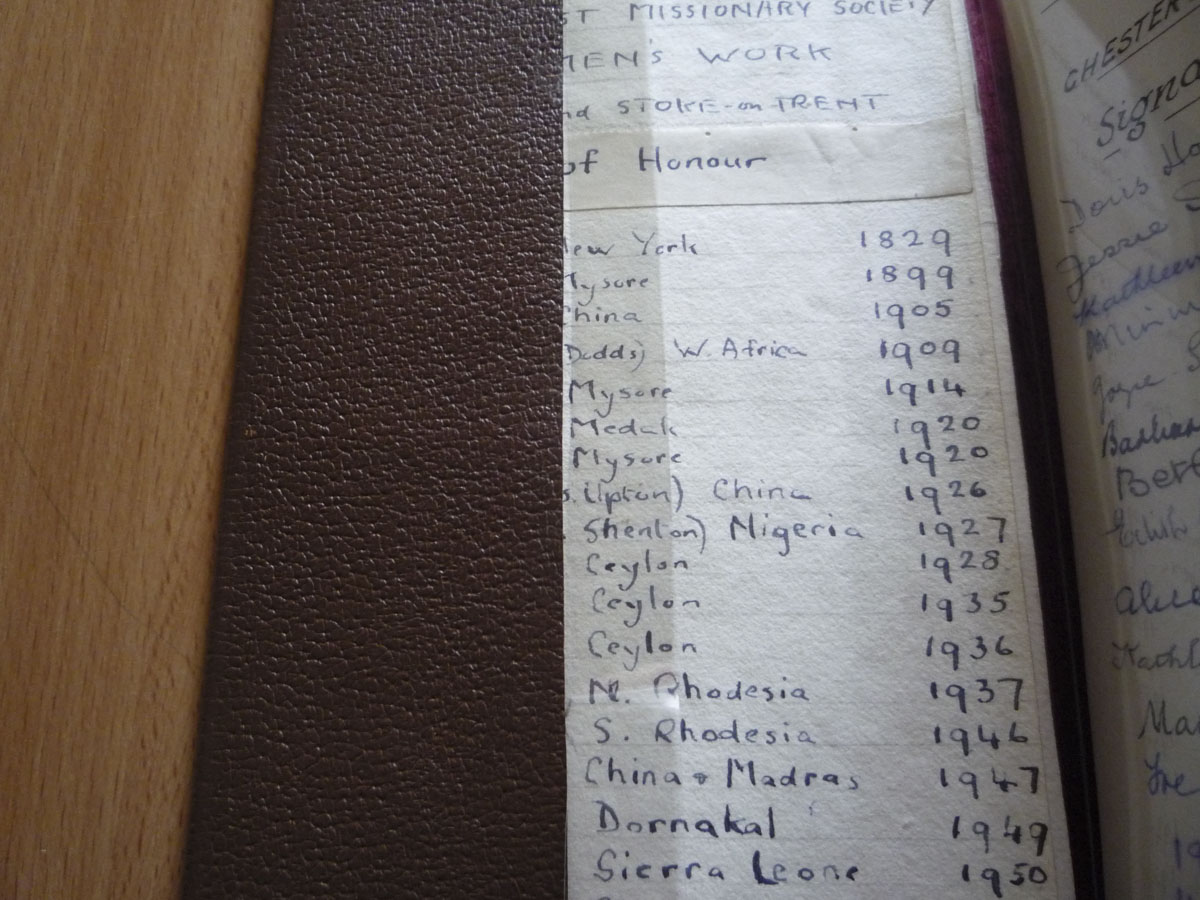 ST MISSIONARY SOCIETY
MEN'S WORK
nd STOKE-on-TRENT
of Honour
New York 1829
Mysore 1899
China 1905
Dodds) W. Africa 1909
Mysore 1914
Medak 1920
Mysore 1920
s. Upton) China 1926
Shenton) Nigeria 1927
Ceylon 1928
Ceylon 1935
Ceylon 1936
N. Rhodesia 1937
S. Rhodesia 1946
China & Madras 1947
Dornakal 1949
Sierra Leone 1950
CHESTER
Signa
Doris Ho
Jessie
Kathleen
Joyce
Barbara
Bet
Edith
Alice
Kathl
Ma